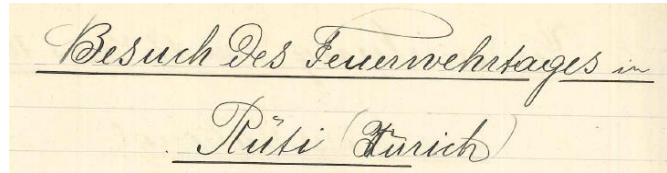 Besuch des Feuerwehrtages in
Rüti (Zürich)